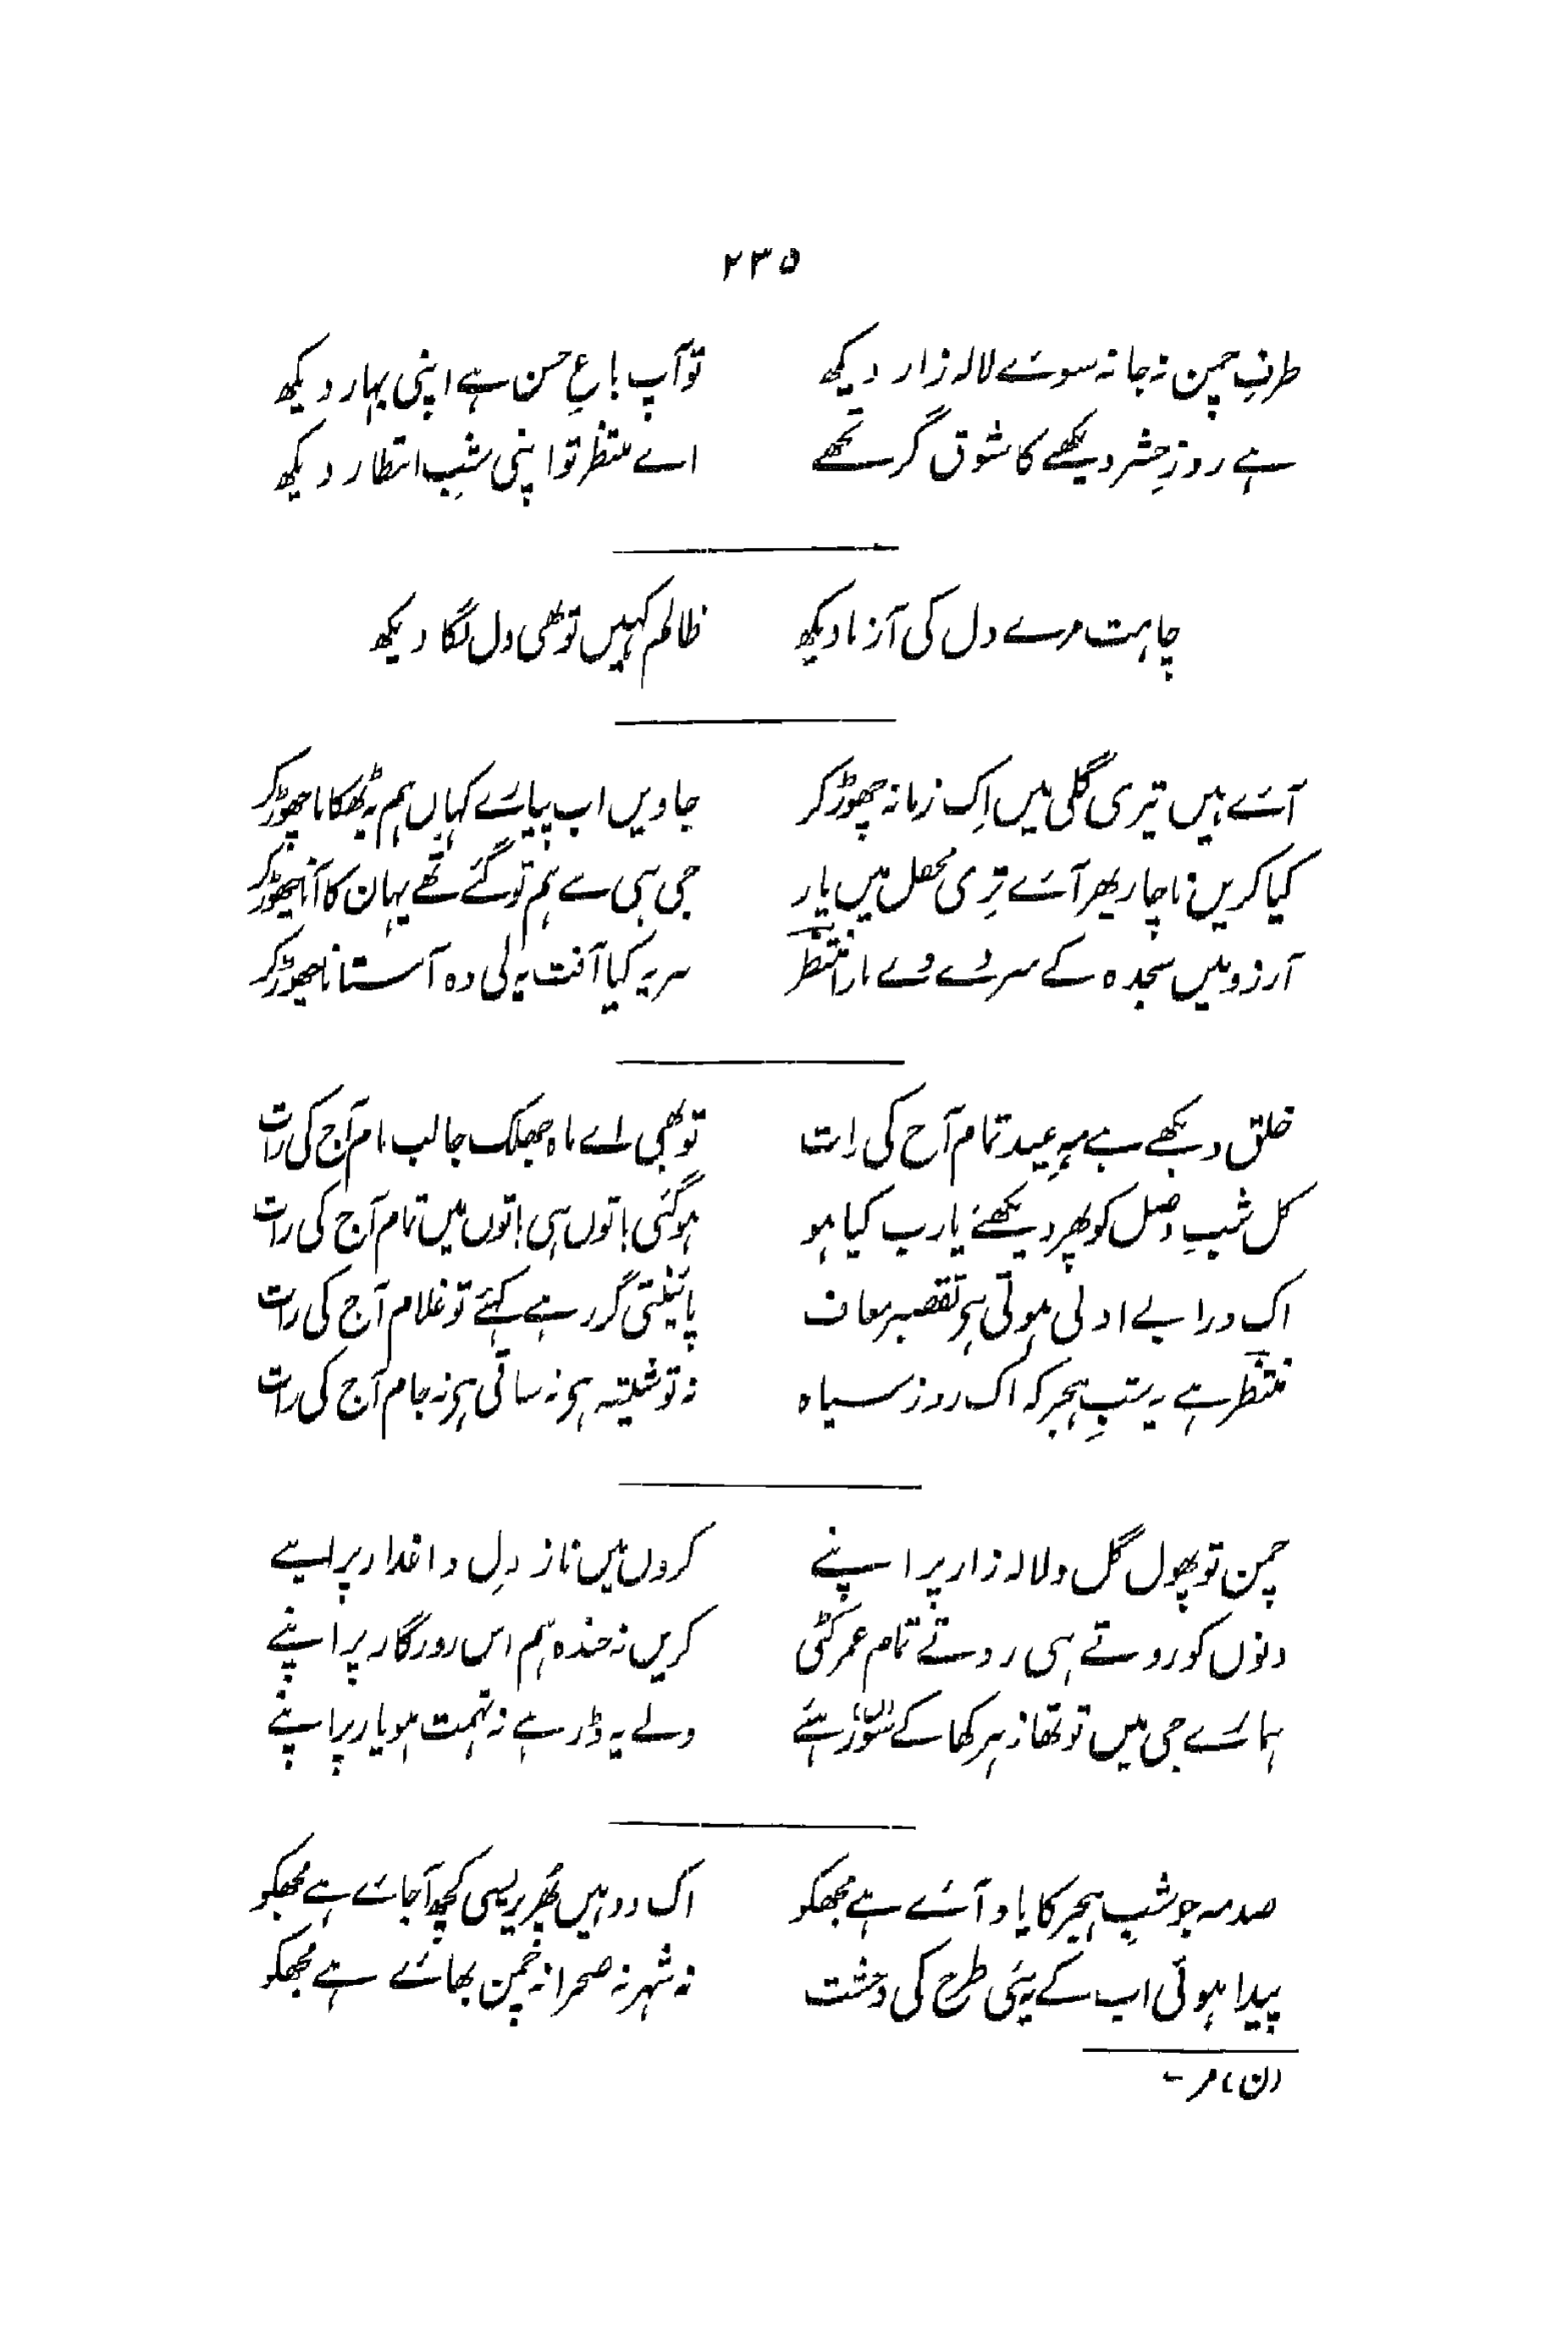 ۲۳۵
طرفِ چمن نہ جا نہ سوئے لالہ زار دیکھ تو آپ باغِ حسن ہے اپنی بہار دیکھ
ہے روزِ حشر دیکھنے کا شوق گر تجھے اے منتظر تو اپنی شبِ انتظار دیکھ
چاہت مرے دل کی آزما دیکھ ظالم کہیں تو بھی دل لگا دیکھ
آئے ہیں تیری گلی میں اِک زمانہ چھوڑ کر جاویں اب پیارے کہاں ہم یہ ٹھکانا چھوڑ کر
کیا کریں ناچار پھر آئے تِری محفل میں یار جی ہی سے ہم تو گئے تھے یہاں کا آنا چھوڑ کر
آرزو میں سجدہ کے سر دے دے مارا منتظر سر پہ کیا آفت یہ لی وہ آستانا چھوڑ کر
خلق دیکھے ہے مہِ عید تمام آج کی رات تو بھی اے ماہ جھلک جا لب بام آج کی رات
کل شبِ وصل کو پھر دیکھنے یارب کیا ہو ہو گئی باتوں ہی باتوں میں تمام آج کی رات
اک ذرا بے ادبی ہوتی ہی تقصیر معاف پائینتی گر رہے کہئے تو غلام آج کی رات
منتظر ہے یہ شبِ ہجر کہ اک روز سیاہ نہ تو شیشہ ہی نہ ساقی ہی نہ جام آج کی رات
چمن تو پھول گل و لالہ زار پر اپنے کروں میں ناز دلِ داغدار پر اپنے
دنوں کو روتے ہی روتے تمام عمر کٹی کریں نہ خندہ ہم اس روزگار پر اپنے
ہمارے جی میں تو تھا زہر کھا کے سو رہئے ولے یہ ڈر ہے نہ تہمت ہو یار پر اپنے
صدمہ جو شبِ ہجر کا یاد آئے ہے مجھکو اک دو ہیں پھریری سی کچھ آ جائے ہے مجھکو
پیدا ہوئی اب کے یہ نئی طرح کی وحشت نہ شہر نہ صحرا نہ چمن بھائے ہے مجھکو
(ن) مر۔